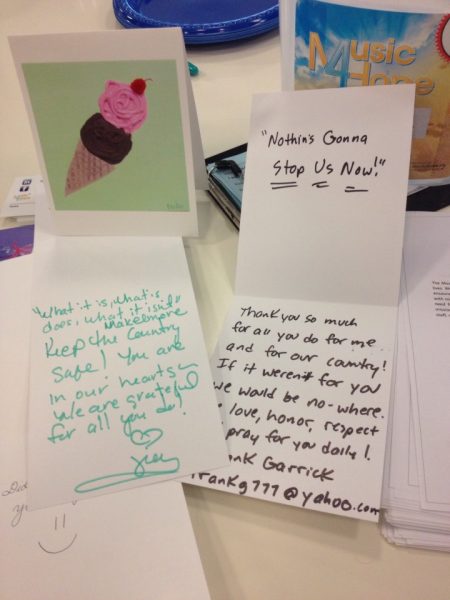 Music
4
Hope
"Nothin's Gonna
Stop Us Now!"
"What it is, what is
does, what it isid"
Makeempire
Keep the Country
Safe! You are
in our hearts
We are grateful
for all you do!
Thank you so much
for all you do for me
and for our country!
If it weren't for you
we would be no-where.
love, honor, respect
pray for you daily!
Garrick
frankg777@yahoo.com